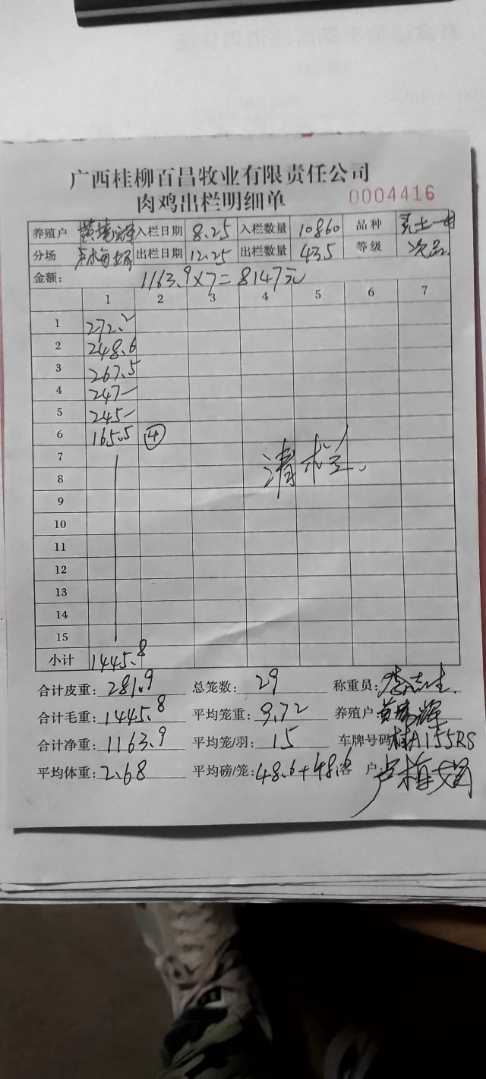 广西桂柳百昌牧业有限责任公司
肉鸡出栏明细单 0004416
养殖户 入栏日期 8.25 入栏数量 10860 品种
分场 出栏日期 12.25 出栏数量 435 等级 次品
金额: 1163.9×7=8147元
1 2 3 4 5 6 7
1 272.2
2 248.6
3 267.5
4 247-
5 245-
6 165.5 ④
7
8 清栏
9
10
11
12
13
14
15
小计 1445.8
合计皮重: 281.9 总笼数: 29 称重员: 李志生
合计毛重: 1445.8 平均笼重: 9.72 养殖户
合计净重: 1163.9 平均笼/羽: 15 车牌号码 桂A155RS
平均体重: 2.68 平均磅/笼: 48.6+48.6 客户